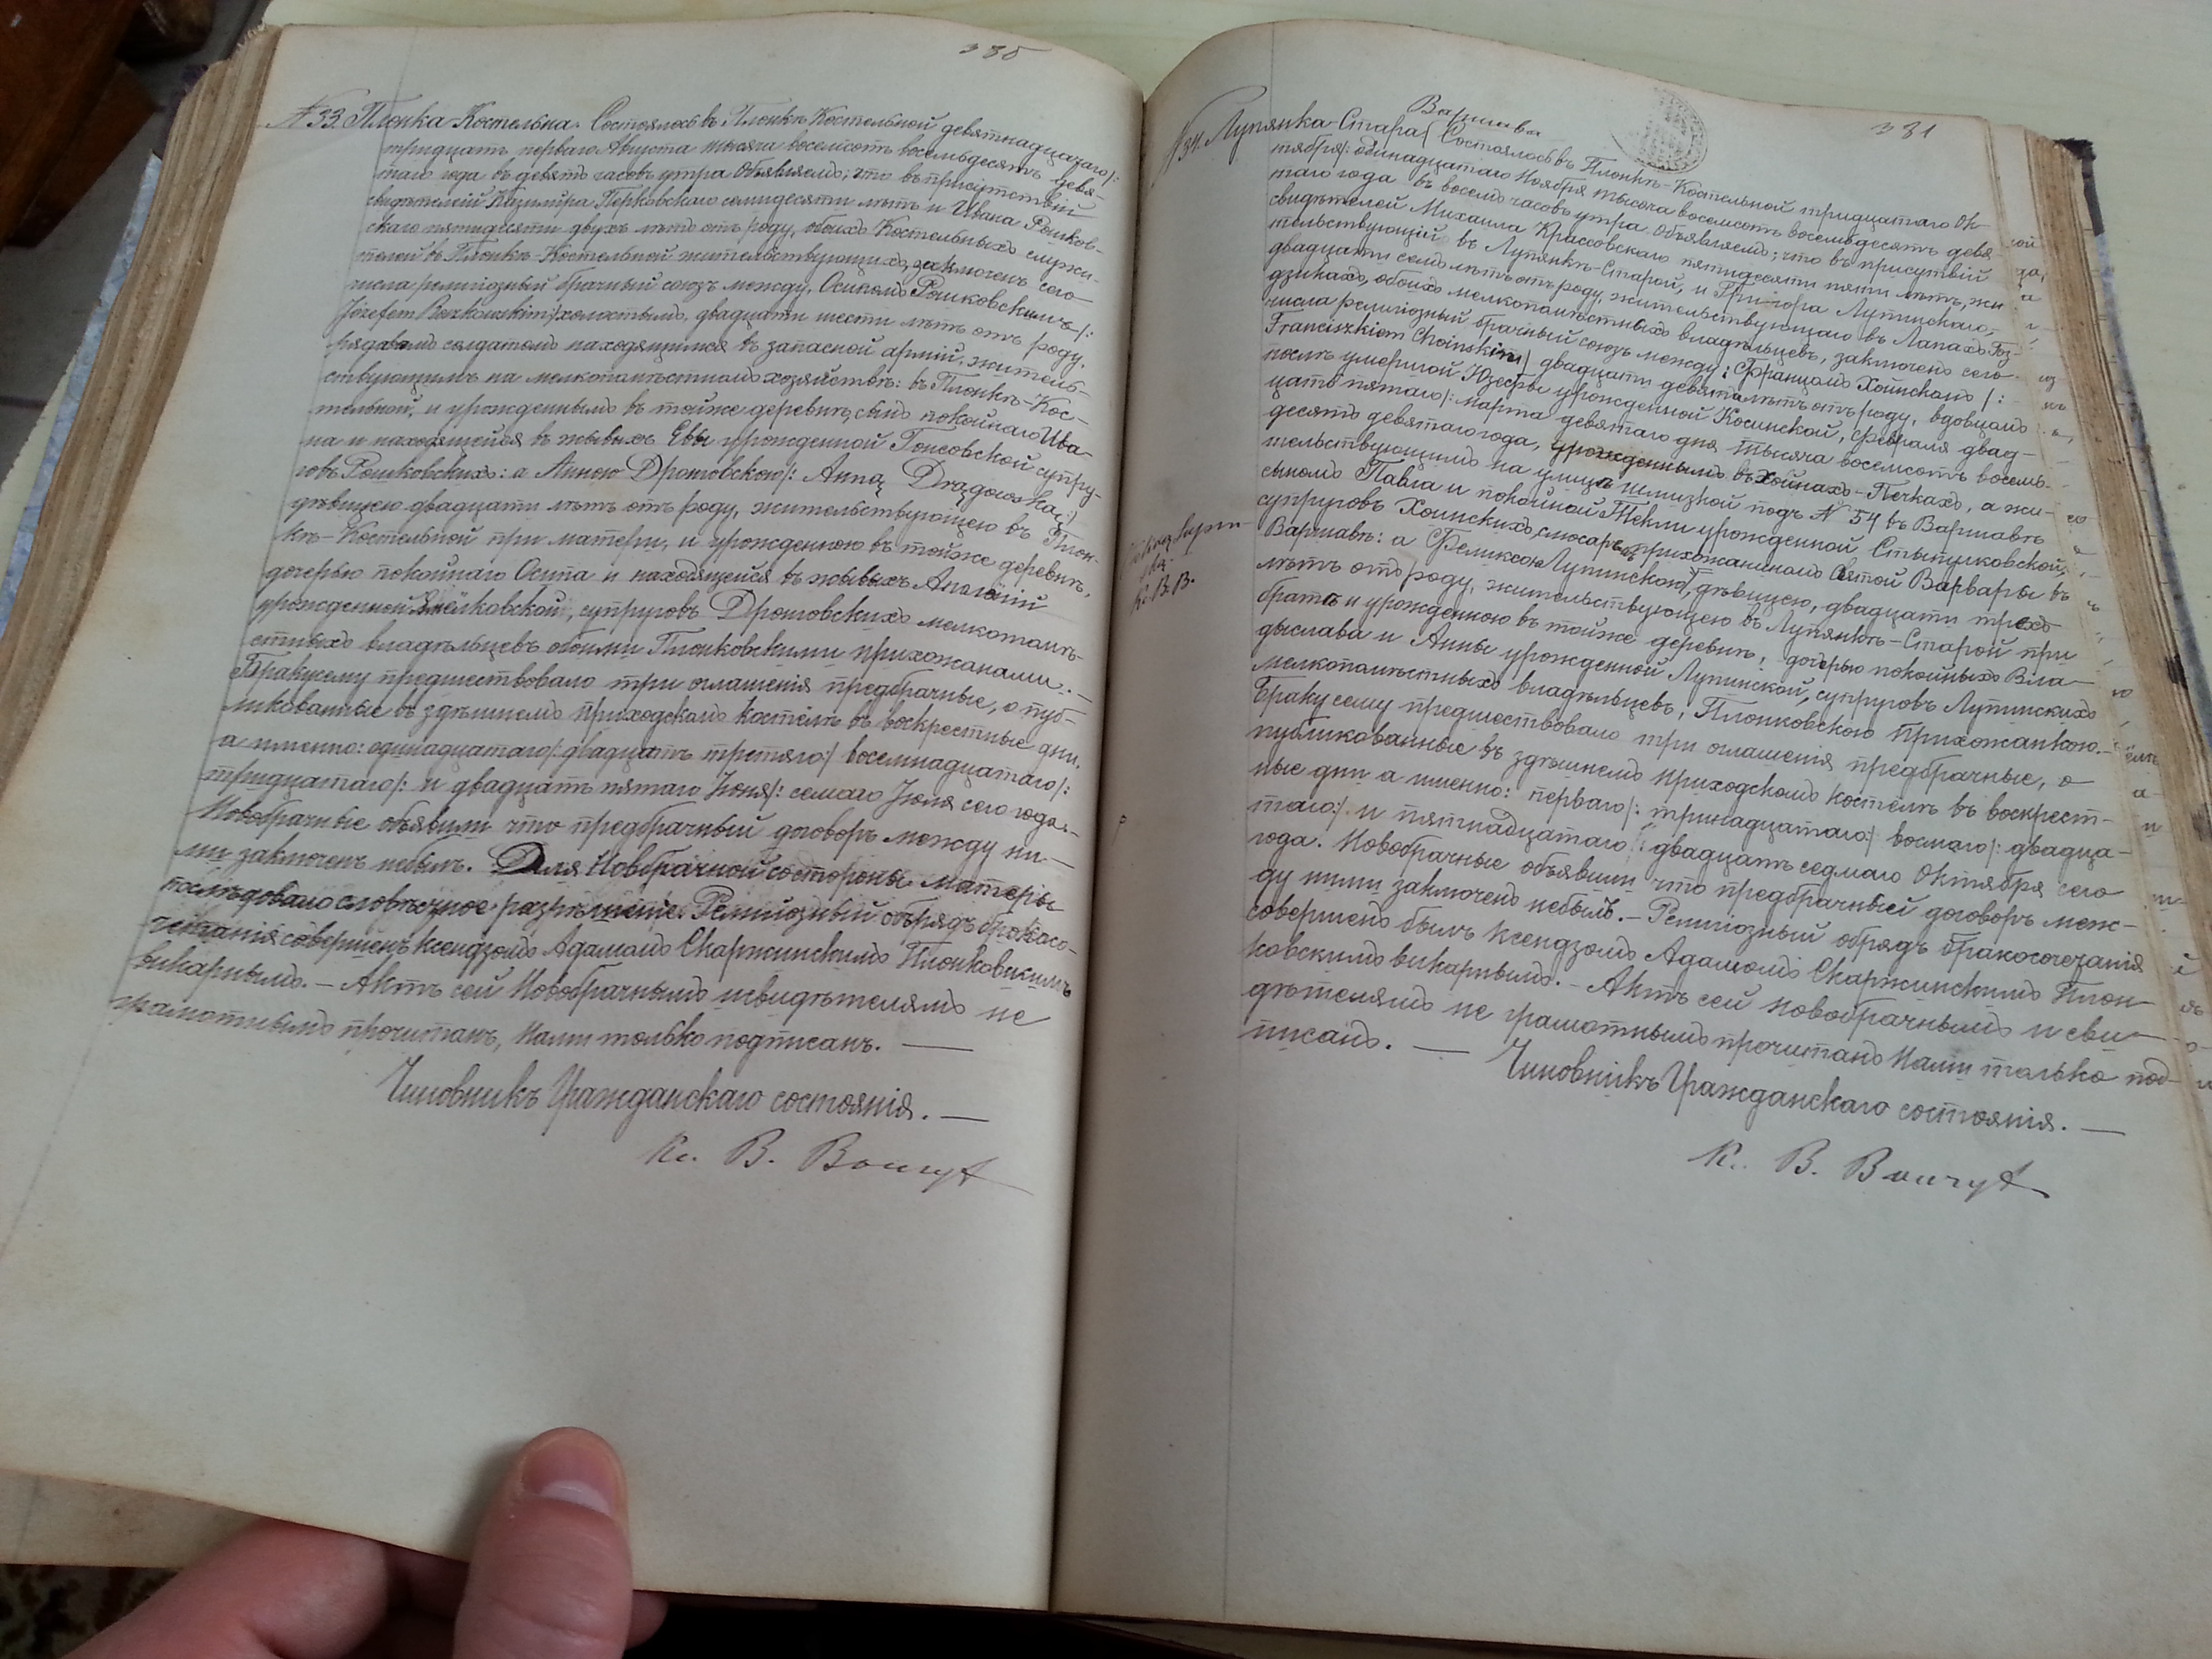 380
№ 33. Плонка-Костельна. Состоялось въ Плонкѣ Костельной девятнадцатаго/:
тридцать перваго Августа тысяча восемьсотъ восемьдесятъ девя-
таго года въ девять часовъ утра. Объявляемъ, что въ присутствіи
свидѣтелей Казимира Перковскаго семидесяти лѣтъ и Ивана Рошков-
скаго пятидесяти двухъ лѣтъ отъ роду, обоихъ Костельныхъ служи-
телей въ Плонкѣ-Костельной жительствующихъ, заключенъ сего
числа религіозный брачный союзъ между, Осипомъ Рошковскимъ/:
Józefem Roszkowskim:/ холостымъ, двадцати шести лѣтъ отъ роду,
рядовымъ солдатомъ находящимся въ запасной арміи, житель-
ствующимъ на мелкопомѣстномъ хозяйствѣ: въ Плонкѣ-Кос-
тельной, и урожденнымъ въ тойже деревнѣ, сынъ покойнаго Ива-
на и находящейся въ живыхъ Евы урожденной Гонсовской супру-
говъ Рошковскихъ: а Анною Дронговскою/: Anną Drągowską:/
дѣвицею двадцати лѣтъ отъ роду, жительствующею въ Плон-
кѣ-Костельной при матери, и урожденною въ тойже деревнѣ,
дочерью покойнаго Осипа и находящейся въ живыхъ Аполоніи
урожденной супруговъ Дронговскихъ мелкопомѣ-
стныхъ владѣльцевъ обоими Плонковскими прихожанами. —
Браку сему предшествовало три оглашенія предбрачные, опуб-
ликованные въ здѣшнемъ приходскомъ костёлѣ въ воскрестные дни,
а именно: одинадцатаго/: двадцать третяго:/ восемнадцатаго/:
тридцатаго/: и двадцать пятаго Іюня/: семаго Іюля сего года. —
Новобрачные объявили что предбрачный договоръ между ни-
ми заключенъ небылъ. Для Новобрачной состороны матеры
послѣдовало словѣсное разрѣшеніе. Религіозный обрядъ бракосо-
четанія совершенъ Ксендзомъ Адамомъ Скаржинскимъ Плонковскимъ
викарнымъ. — Актъ сей Новобрачнымъ и свидѣтелямъ не
грамотнымъ прочитанъ, Нами только подписанъ. —
Чиновникъ Гражданскаго состоянія. —
К. В.
381
Варшава
№ 34. Лупянка-Стара/ Состоялось въ Плонкѣ-Костельной тридцатаго Ок-
тября/: одинадцатаго Ноября тысяча восемьсотъ восемьдесятъ девя
таго года въ восемь часовъ утра. Объявляемъ, что въ присутвіи
свидѣтелей Михаила Крассовскаго пятидесяти пяти лѣтъ, жи
тельствующій въ Лупянкѣ-Старой, и Григора Лупинскаго,
двадцати семь лѣтъ отъ роду, жительствующаго въ Лапахъ Гоз-
дзикахъ, обоихъ мелкопомѣстныхъ владѣльцевъ, заключенъ сего
числа религіозный брачный союзъ между: Францомъ Хоинскимъ/:
Franciszkiem Choinskim/ двадцати девяти лѣтъ отъ роду, вдовцомъ
послѣ умершой Юзефы урожденной Косинской, февраля двад-
цать пятаго/: марта девятаго дня тысяча восемсотъ восемь-
десятъ девятаго года, урожденнымъ въ Хойнахъ-Печкахъ, а жи-
тельствующимъ на улицѣ шлизкой подъ № 54 въ Варшавѣ
сыномъ Павла и покойной Теклы урожденной Стыпулковской,
супруговъ Хоинскихъ слюсаремъ, прихожаниномъ святой Варвары въ
Варшавѣ: а Феликсою Лупинскою, дѣвицею, двадцати трехъ
лѣтъ отъ роду, жительствующею въ Лупянкѣ-Старой при
братѣ и урожденною въ тойже деревнѣ, дочерью покойныхъ Вла-
дыслава и Анны урожденной Лупинской, супруговъ Лупинскихъ
мелкопомѣстныхъ владѣльцевъ, Плонковскою прихожанкою. —
Браку сему предшествовало три оглашенія предбрачные, о
публикованные въ здѣшнемъ приходскомъ костёлѣ въ воскрест-
ные дни а именно: перваго/: тринадцатаго:/ восмаго/: двадца-
таго:/ и пятнадцатаго/: двадцать седмаго Октября сего
года. Новобрачные объявили что предбрачный договоръ меж-
ду ними заключенъ небылъ. — Религіозный обрядъ бракосочетанія
совершенъ былъ Ксендзомъ Адамомъ Скаржинскимъ Плон-
ковскимъ викарнымъ. — Актъ сей Новобрачнымъ и сви-
дѣтелямъ не грамотнымъ прочитанъ Нами только под-
писанъ. —
Чиновникъ Гражданскаго состоянія. —
К. В.
К. В. В.